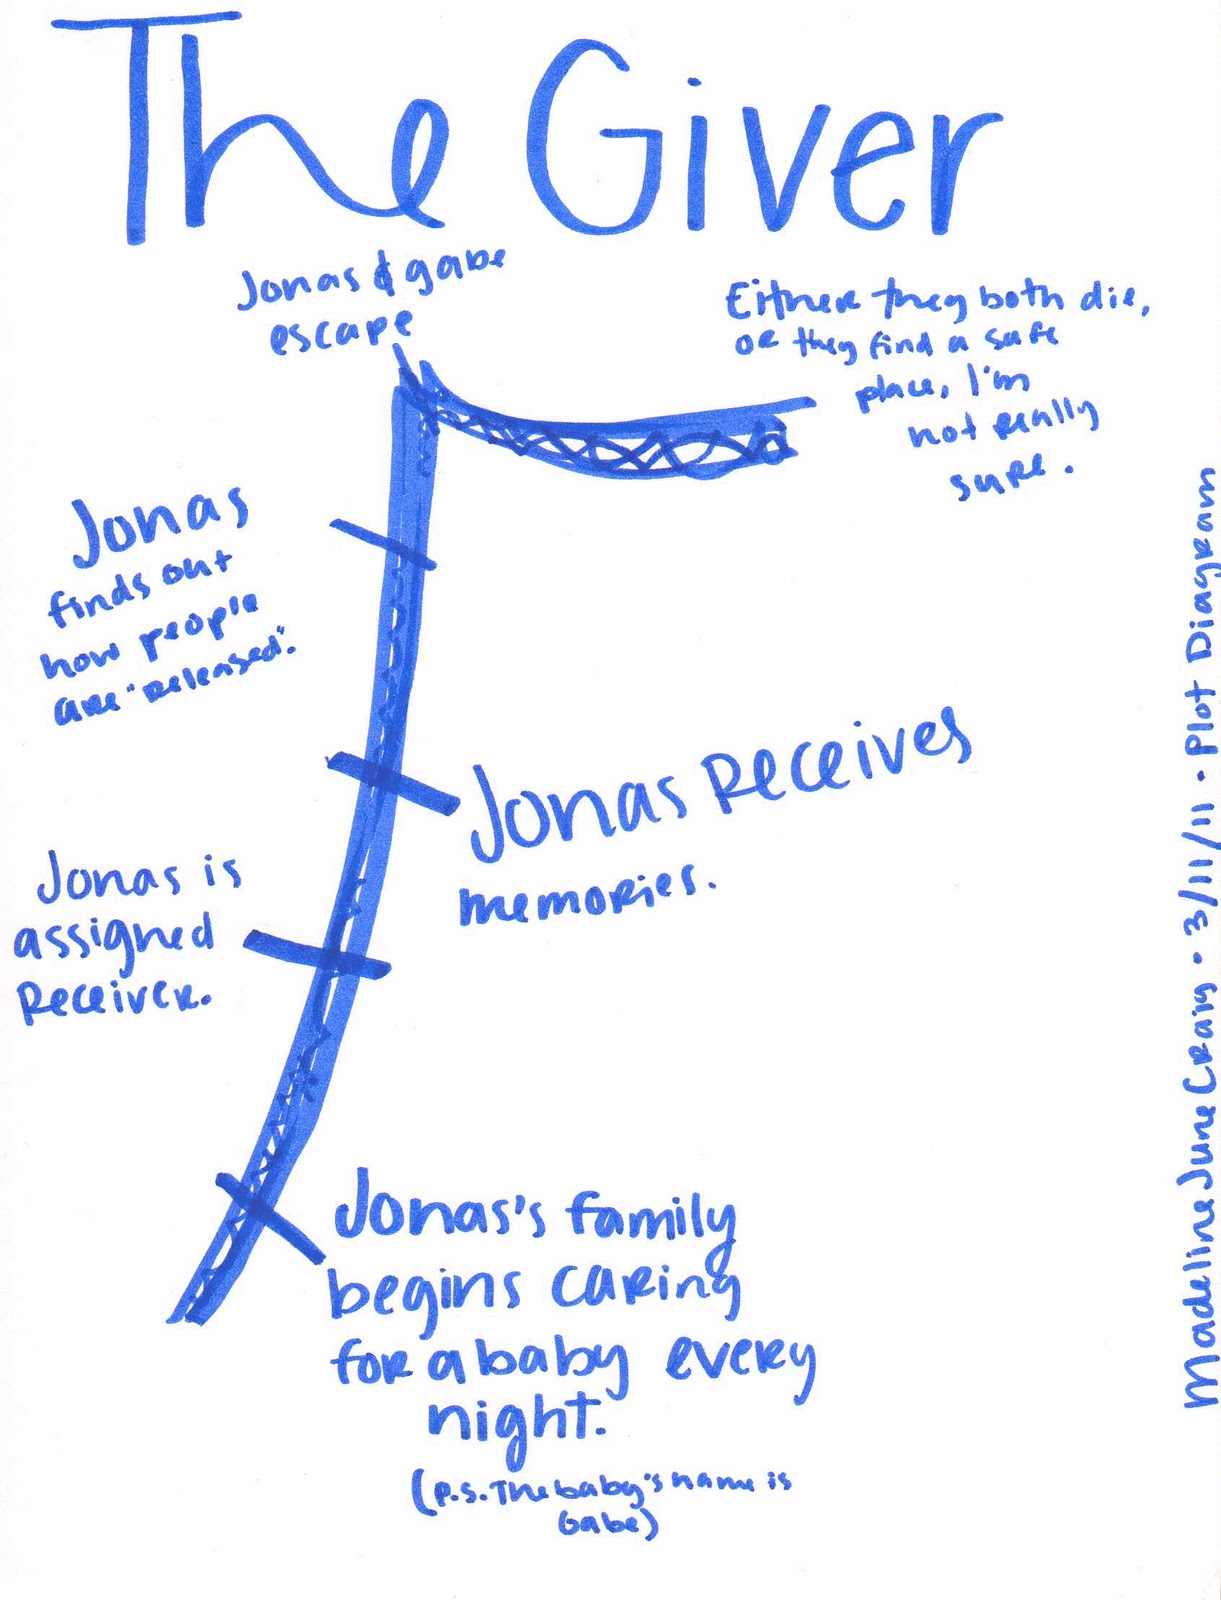 The Giver
Jonas & gabe
escape
Either they both die,
or they find a safe
place, I'm
not really
sure.
Jonas
finds out
how people
are "released".
Jonas Receives
memories.
Jonas is
assigned
Receiver.
Jonas's family
begins caring
for a baby every
night.
(P.S. The baby's name is
Gabe)
Madeline June Craig • 3/11/11 • Plot Diagram